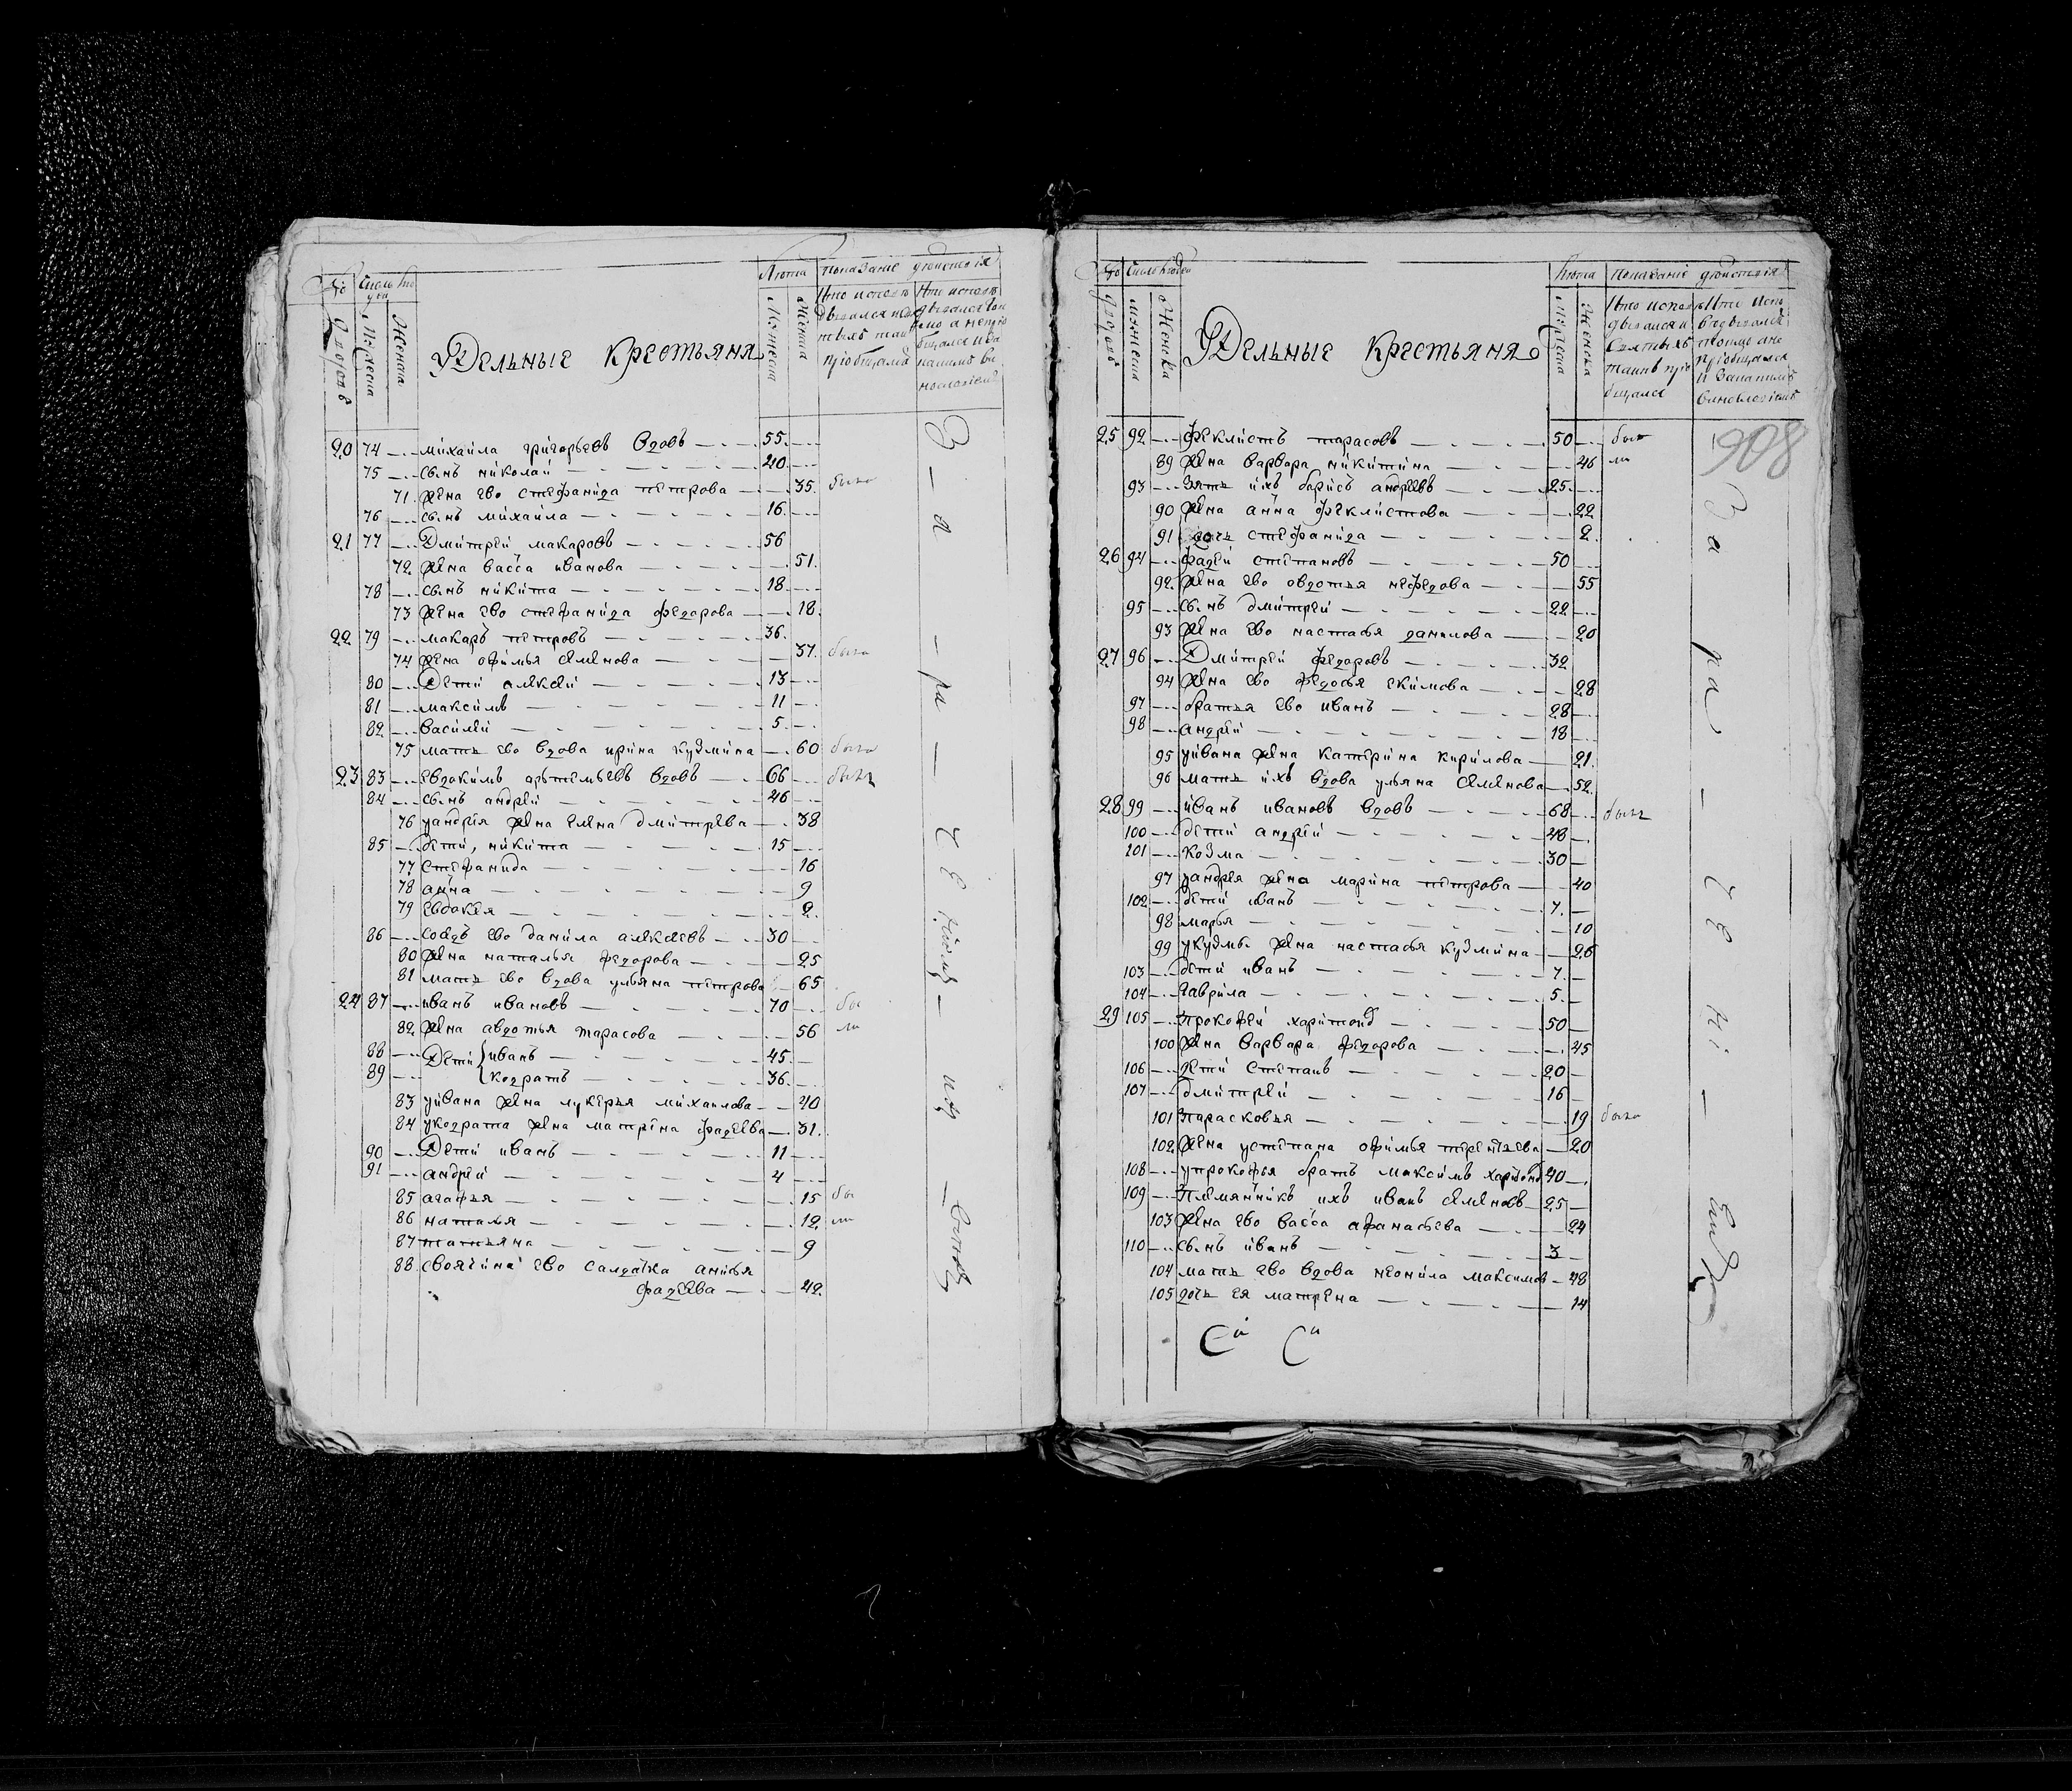 Лѣта Показаніе дѣйствія
Удельные крестьяня
20 74 михаила григорьевъ вдовъ 55
75 сынъ николай 20
71 жена ево стефанида петрова 35 были
76 сынъ михаила 16
21 77 Дмитрей макаровъ 56
72 жена васса иванова 51
78 сынъ никита 18
73 жена ево стефанида федарова 18
22 79 макаръ петровъ 36
74 жена офимья семенова 37 были
80 Дети алексей 13
81 максимъ 11
82 василей 5
75 мать ево вдова ирина кузмина 60 были
23 83 евдокимъ артемьевъ вдовъ 66 были
84 сынъ андрей 46
76 уандрея жена елена дмитрева 38
85 дети, никита 15
77 стефанида 16
78 анна 9
79 евдокея 2
86 соедъ ево данила алексеевъ 30
80 жена наталья федорова 25
81 мать ево вдова ульяна петрова 65
24 87 иванъ ивановъ 70 бы
82 жена авдотья тарасова 56 ли
88 Дети иванъ 45
89 кодратъ 36
83 уивана жена лукерья михаилова 40
84 укодрата жена матрена фадеева 31
90 Дети иванъ 11
91 андрей 4
85 агафья 15 бы
86 наталья 12 ли
87 татьяна 9
88 своячина ево салдатка анисья
фадеева 42
Лѣта Показаніе дѣйствія
Удельные крестьяня
908
25 92 феклистъ тарасовъ 50 бы
89 жена варвара никитина 46 ли
93 зять ихъ борисъ андреевъ 25
90 жена анна феклистова 22
91 дочь стефанида 2
26 94 фадей степановъ 50
92 жена ево овдотья нефедова 55
95 сынъ дмитрей 22
93 жена ево настасья данилова 20
27 96 Дмитрей федаровъ 32
94 жена ево федосья екимова 28
97 братья ево иванъ 28
98 андрей 18
95 уивана жена катерина кирилова 21
96 мать ихъ вдова ульяна семенова 52
28 99 иванъ ивановъ вдовъ 68 были
100 дети андрей 48
101 козма 30
97 уандрея жена марина петрова 40
102 дети иванъ 7
98 марья 10
99 укузмы жена настасья кузмина 26
103 дети иванъ 7
104 гаврила 5
29 105 прокофей харитонов 50
100 жена варвара федорова 45
106 дети степанъ 20
107 дмитрей 16
101 парасковья 19 были
102 жена устепана офимья терентева 20
108 упрокофья братъ максимъ харитонов 40
109 племянникъ ихъ иванъ семеновъ 25
103 жена ево васса афанасева 24
110 сынъ иванъ 3
104 мать ево вдова неонила максимов 48
105 дочь ея матрена 14